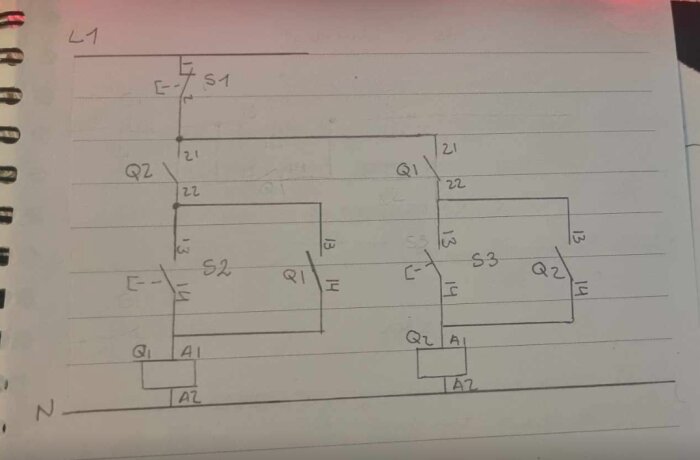 L1
1
S1
2
21
21
Q2
Q1
22
22
13
13
13
13
S2
Q1
S3
S3
Q2
14
14
14
14
Q1
A1
Q2
A1
A2
A2
N